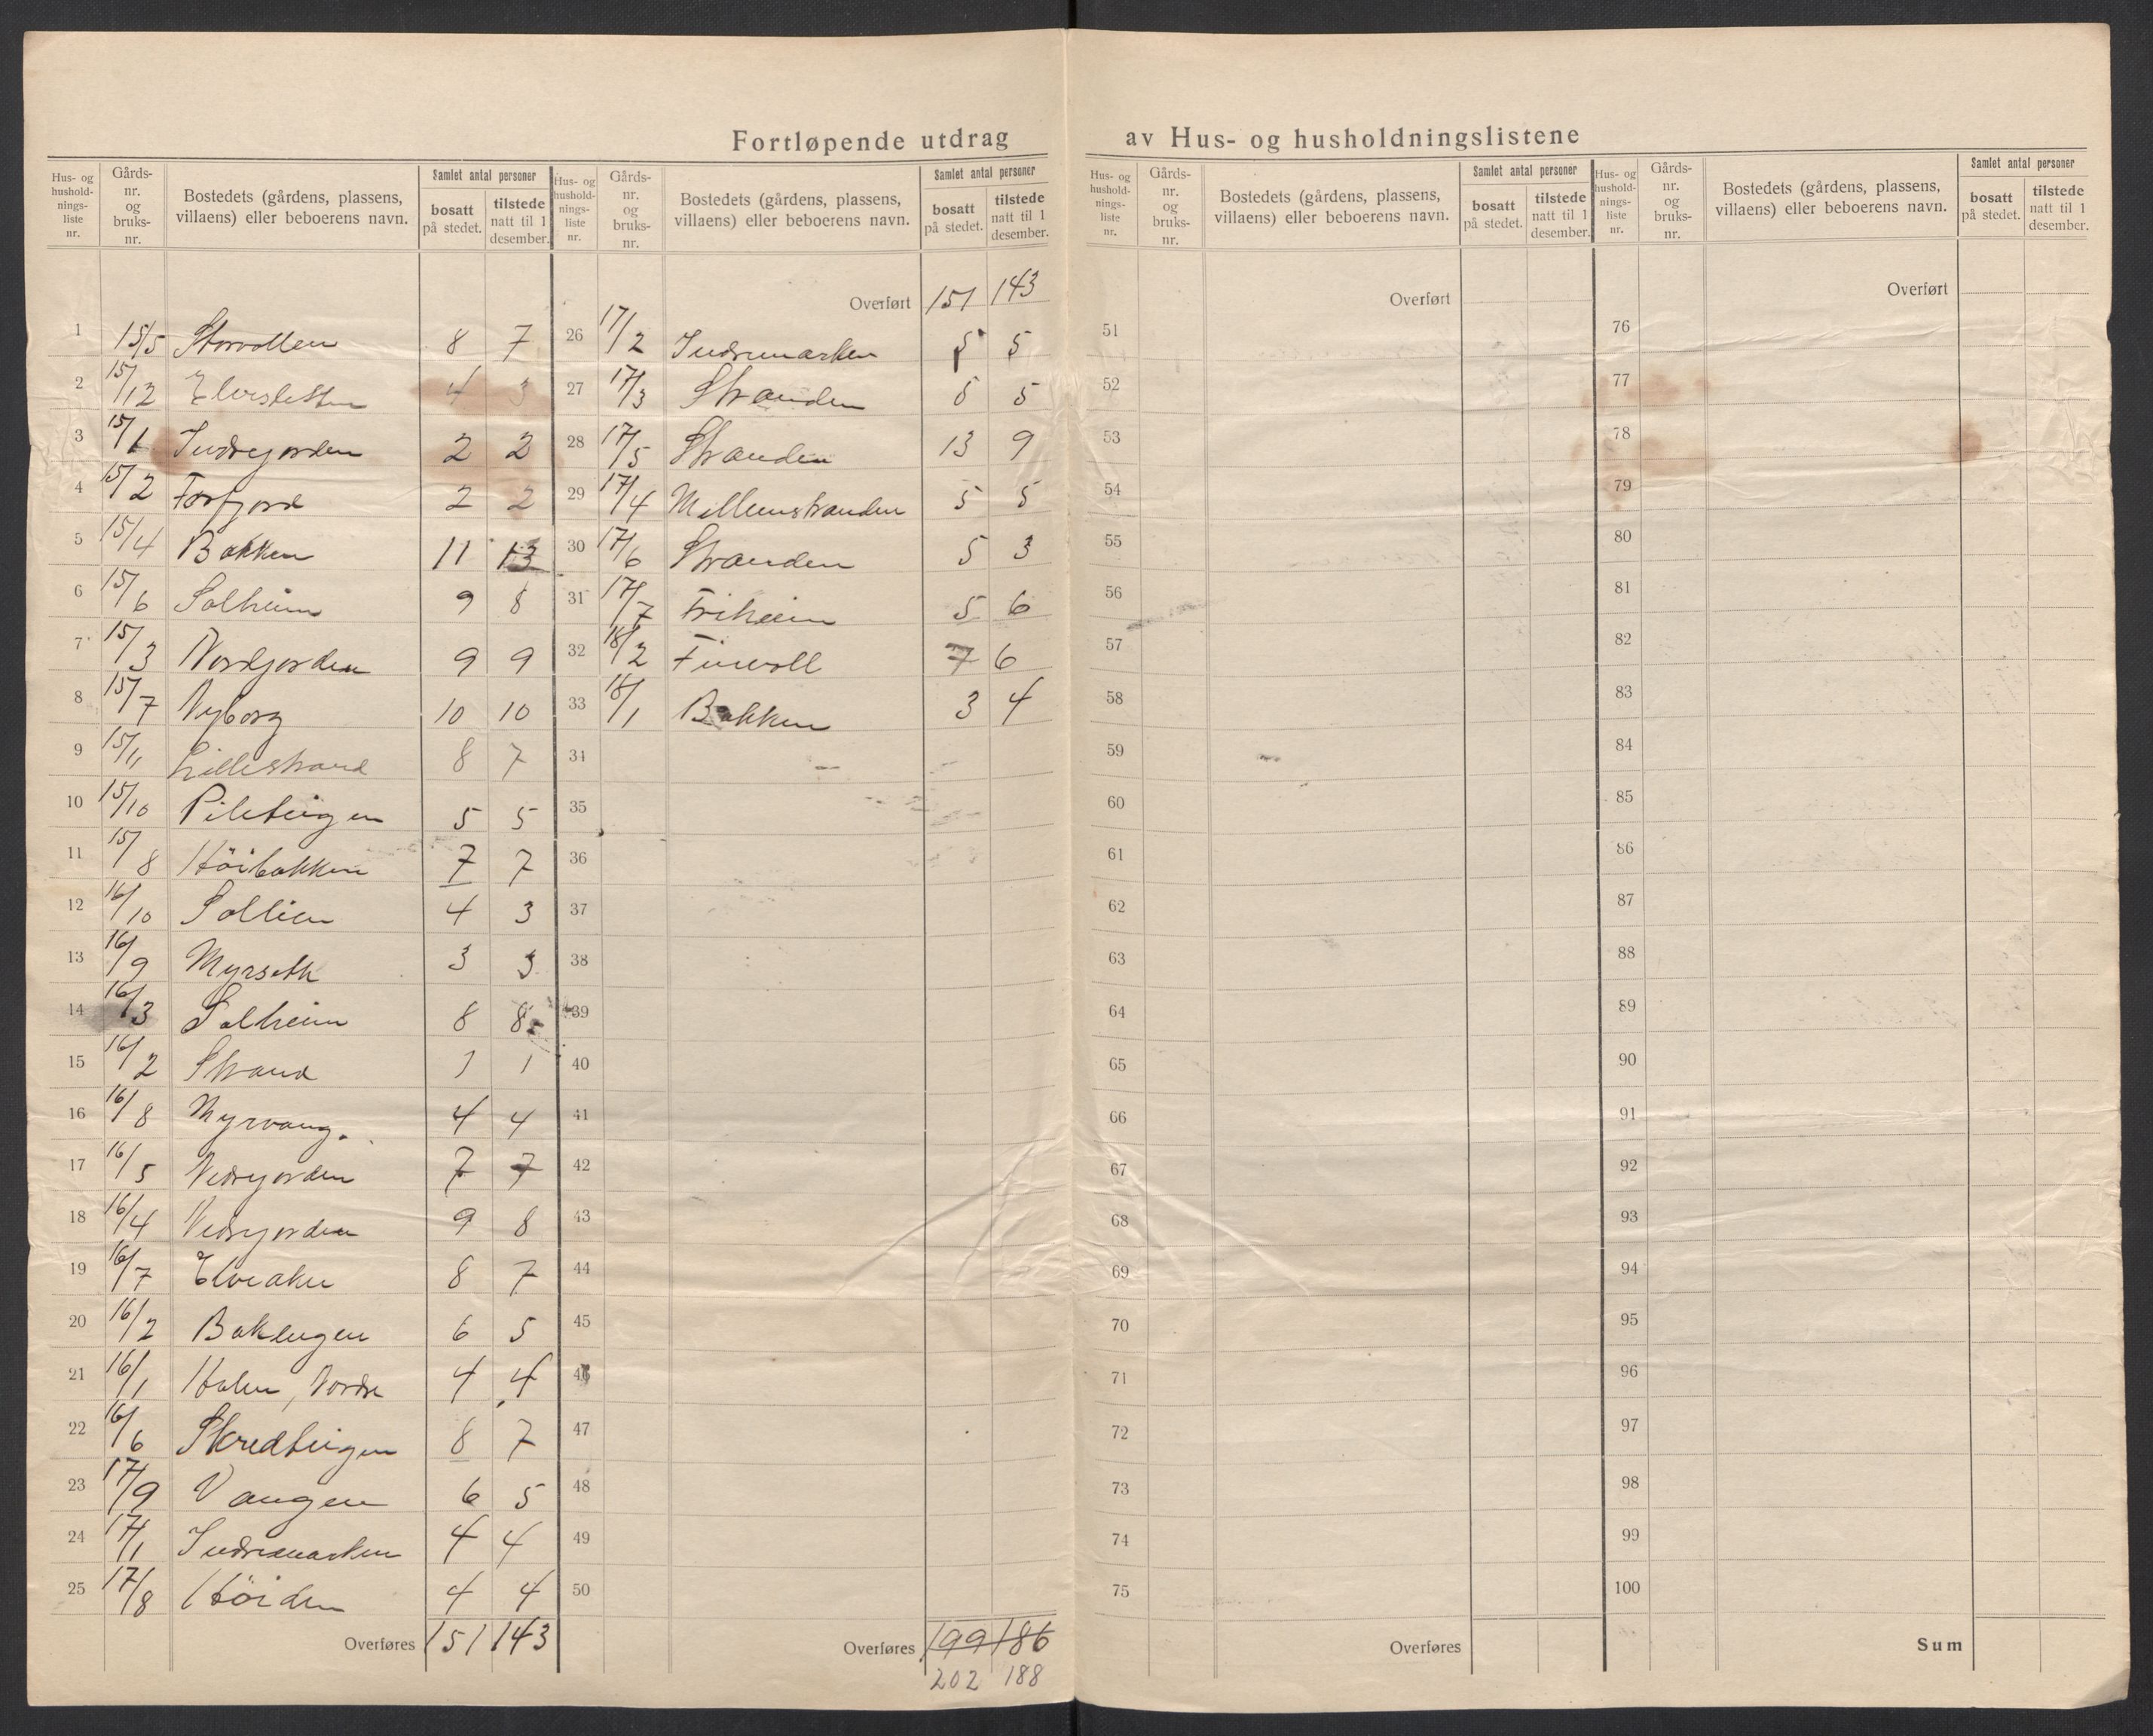 Fortløpende utdrag av Hus- og husholdningslistene
Hus- og hushold-nings-liste nr. | Gårds-nr. og bruks-nr. | Bostedets (gårdens, plassens, villaens) eller beboerens navn. | Samlet antal personer | bosatt på stedet. | tilstede natt til 1 desember.
1 15/5 Storvollen 8 7
2 15/12 Elvesletten 4 3
3 15/1 Indregorden 2 2
4 15/2 Forfjord 2 2
5 15/4 Bakken 11 13
6 15/6 Solheim 9 8
7 15/3 Nordgorden 9 9
8 15/7 Nyborg 10 10
9 15/11 Lillestrand 8 7
10 15/10 Pileteigen 5 5
11 15/8 Höibakken 7 7
12 16/10 Sollien 4 3
13 16/9 Myrseth 3 3
14 16/3 Solheim 8 8
15 16/2 Strand 1 1
16 16/8 Myrvang. 4 4
17 16/5 Nedregorden 7 7
18 16/4 Nedregorden 9 8
19 16/7 Elveaker 8 7
20 16/2 Bakengen 6 5
21 16/1 Holen, Nordre 4 4
22 16/6 Skredteigen 8 7
23 17/9 Vangen 6 5
24 17/1 Indremarken 4 4
25 17/8 Höiden 4 4
Overføres 151 143
Hus- og hushold-nings-liste nr. | Gårds-nr. og bruks-nr. | Bostedets (gårdens, plassens, villaens) eller beboerens navn. | Samlet antal personer | bosatt på stedet. | tilstede natt til 1 desember.
Overført 151 143
26 17/2 Indremarken 5 5
27 17/3 Stranden 5
28 17/5 Stranden 13 9
29 17/4 Mellemstranden 5 5
30 17/6 Stranden 5 3
31 17/7 Friheim 5 6
32 18/2 Finvoll 7 6
33 18/1 Bakken 3 4
34
35
36
37
38
39
40
41
42
43
44
45
46
47
48
49
50
Overføres 199 186
202 188
Hus- og hushold-nings-liste nr. | Gårds-nr. og bruks-nr. | Bostedets (gårdens, plassens, villaens) eller beboerens navn. | Samlet antal personer | bosatt på stedet. | tilstede natt til 1 desember.
Overført
51
52
53
54
55
56
57
58
59
60
61
62
63
64
65
66
67
68
69
70
71
72
73
74
75
Overføres
Hus- og hushold-nings-liste nr. | Gårds-nr. og bruks-nr. | Bostedets (gårdens, plassens, villaens) eller beboerens navn. | Samlet antal personer | bosatt på stedet. | tilstede natt til 1 desember.
Overført
76
77
78
79
80
81
82
83
84
85
86
87
88
89
90
91
92
93
94
95
96
97
98
99
100
Sum